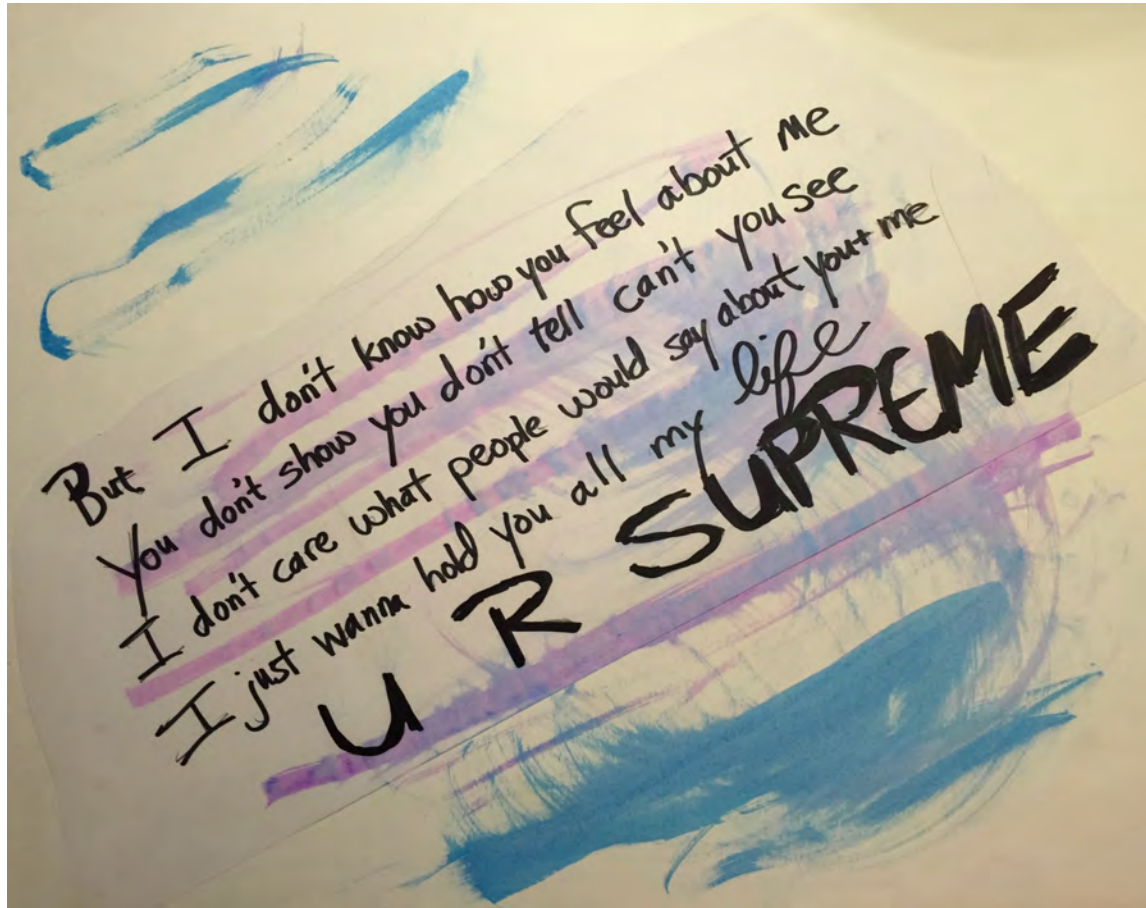 But I don't know how you feel about me
You don't show you don't tell can't you see
I don't care what people would say about you + me
I just wanna hold you all my life
U R SUPREME